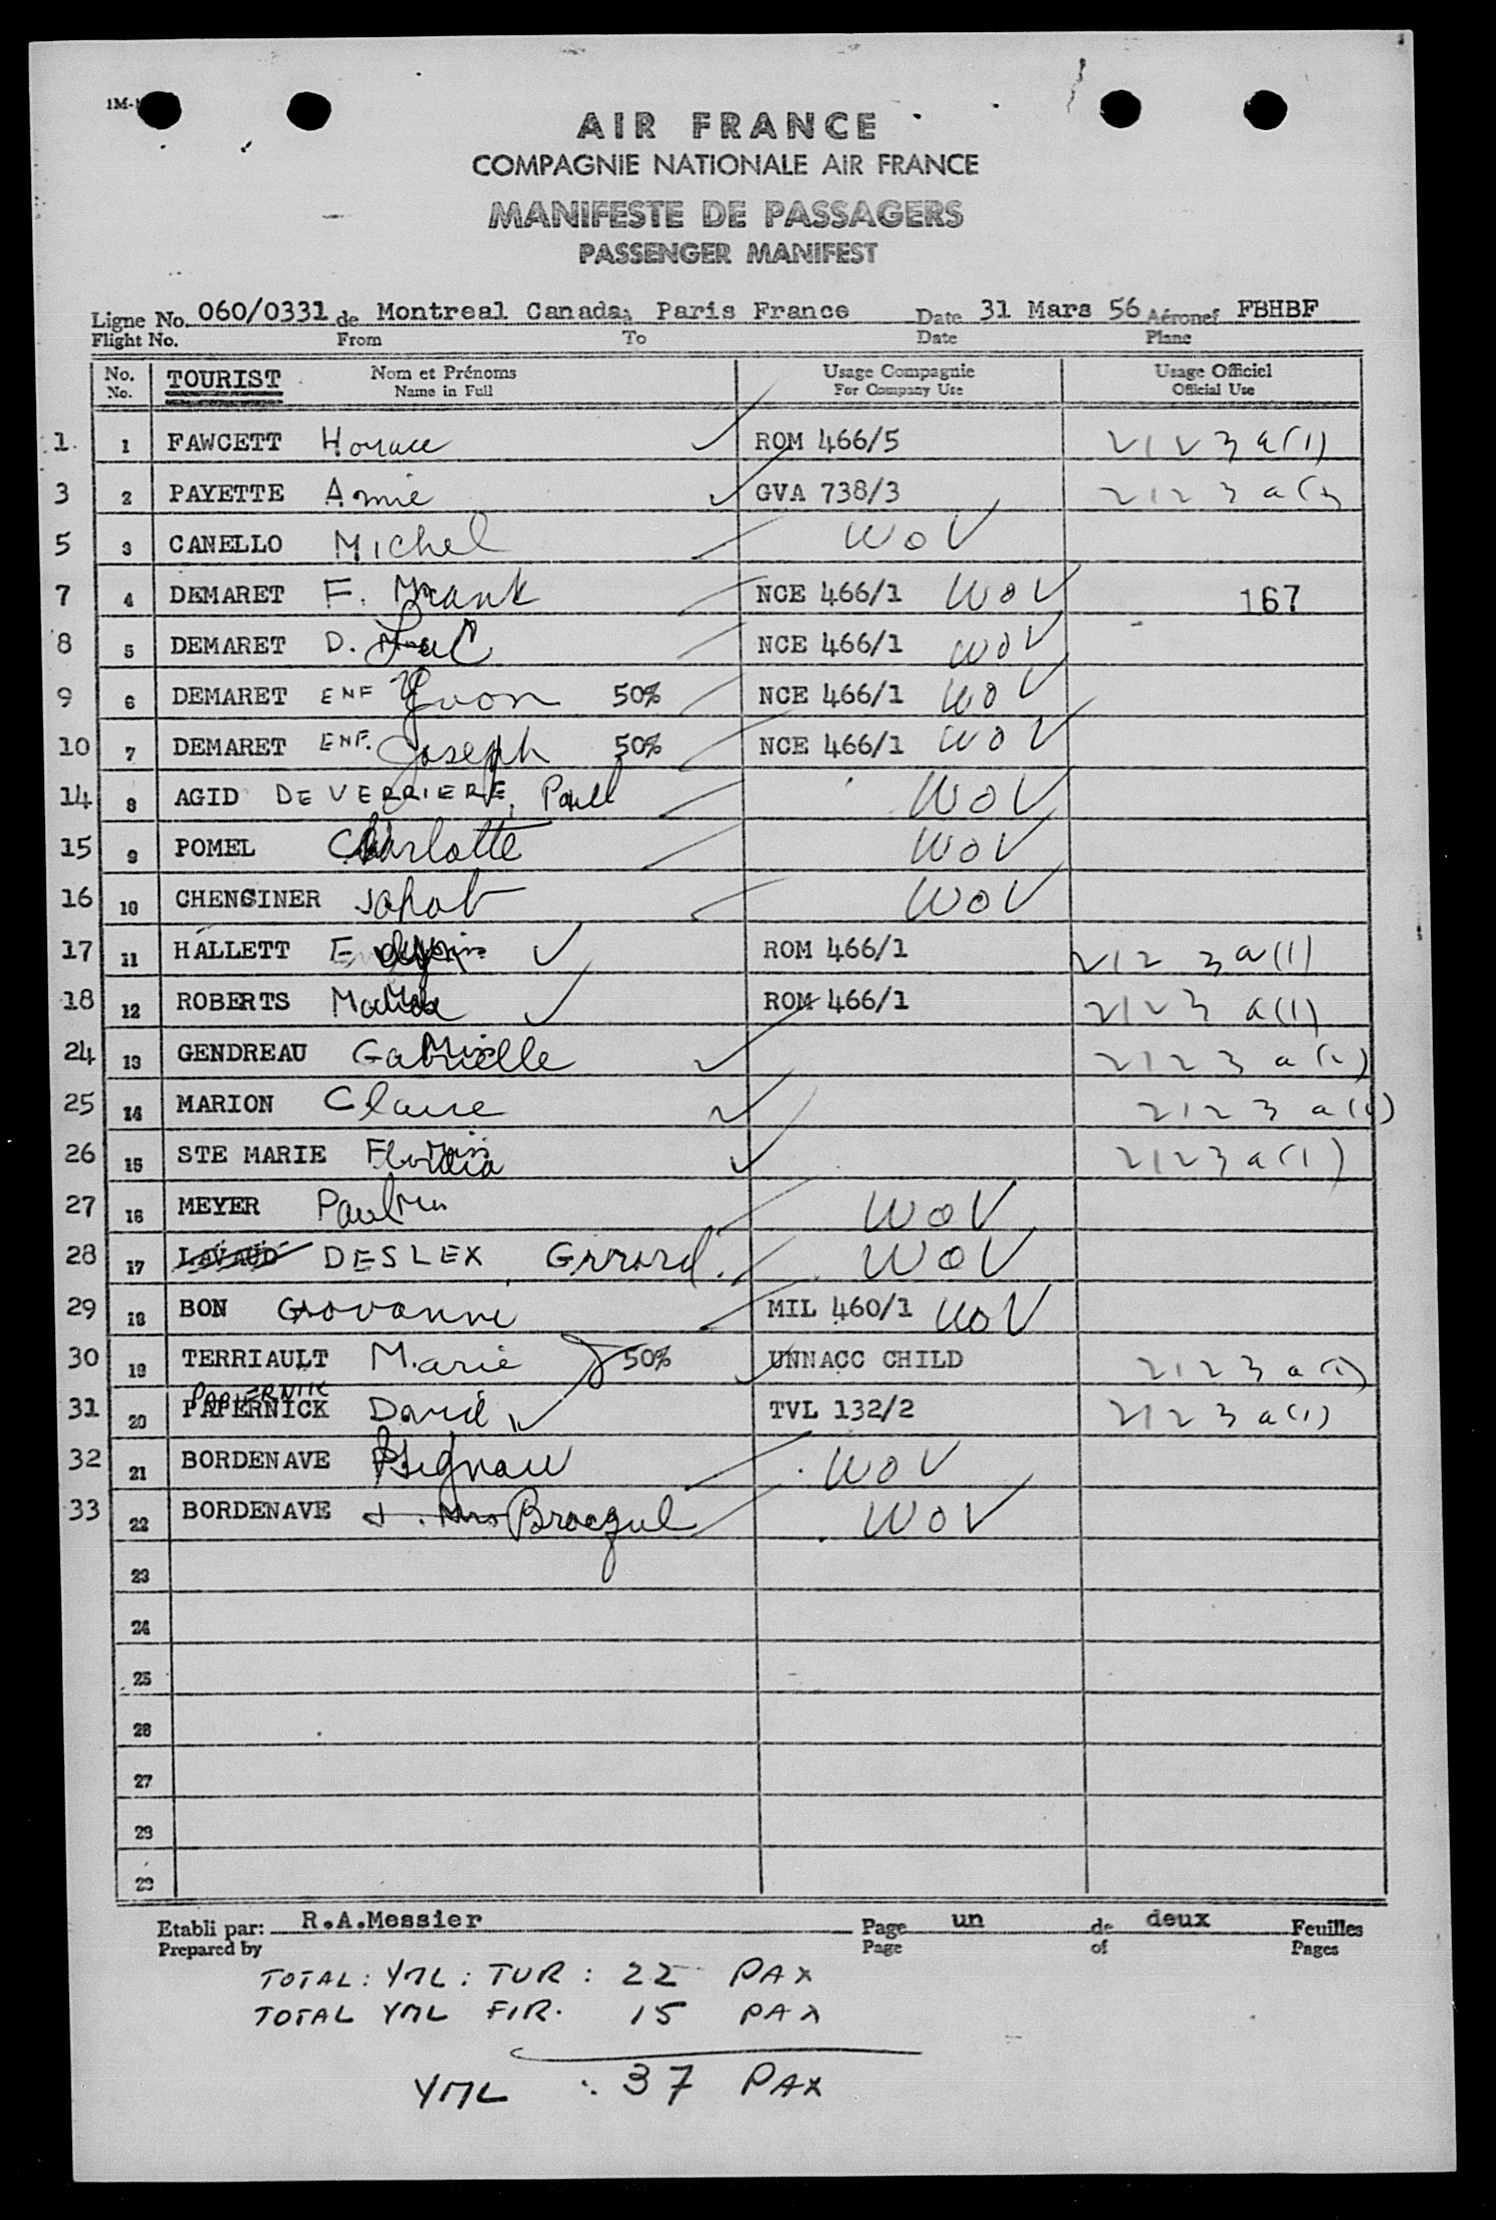 1M-
AIR FRANCE
COMPAGNIE NATIONALE AIR FRANCE
MANIFESTE DE PASSAGERS
PASSENGER MANIFEST
Ligne No. 060/0331 de Montreal Canada à Paris France Date 31 Mars 56 Aéronef FBHBF
Flight No. From To Date Plane
No. TOURIST Nom et Prénoms Usage Compagnie Usage Officiel
No. Name in Full For Company Use Official Use
1. 1 FAWCETT Horace ROM 466/5 2123 a(1)
3 2 PAYETTE GVA 738/3 2123 a
5 3 CANELLO Michel WOV
7 4 DEMARET F. Frank NCE 466/1 WOV 167
8 5 DEMARET D. NCE 466/1 WOV
9 6 DEMARET ENF Yvon 50% NCE 466/1 WOV
10 7 DEMARET ENF. Joseph 50% NCE 466/1 WOV
14 8 AGID DE VERRIERE, Paul WOV
15 9 POMEL Charlotte WOV
16 10 CHENCINER Jakob WOV
17 11 HALLETT ROM 466/1 2123 a(1)
18 12 ROBERTS ROM 466/1 2123 a(1)
24 13 GENDREAU Gabrielle 2123 a
25 14 MARION Claire 2123 a(1)
26 15 STE MARIE 2123 a(1)
27 16 MEYER Paul WOV
28 17 LAVAUD DESLEX, Gerard. WOV
29 18 BON Giovanni MIL 460/1 WOV
30 19 TERRIAULT Marie 50% UNNACC CHILD 2123 a(1)
PAPIERNIK
31 20 PAPERNICK David TVL 132/2 2123 a(1)
32 21 BORDENAVE WOV
33 22 BORDENAVE WOV
23
24
25
26
27
28
29
Etabli par: R.A.Messier Page un de deux Feuilles
Prepared by Page of Pages
TOTAL: YML: TUR: 22 PAX
TOTAL YML FIR. 15 PAX
YML : 37 PAX